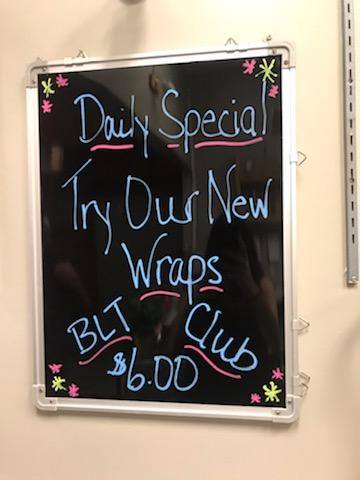 Daily Special
Try Our New
Wraps
BLT Club
$6.00